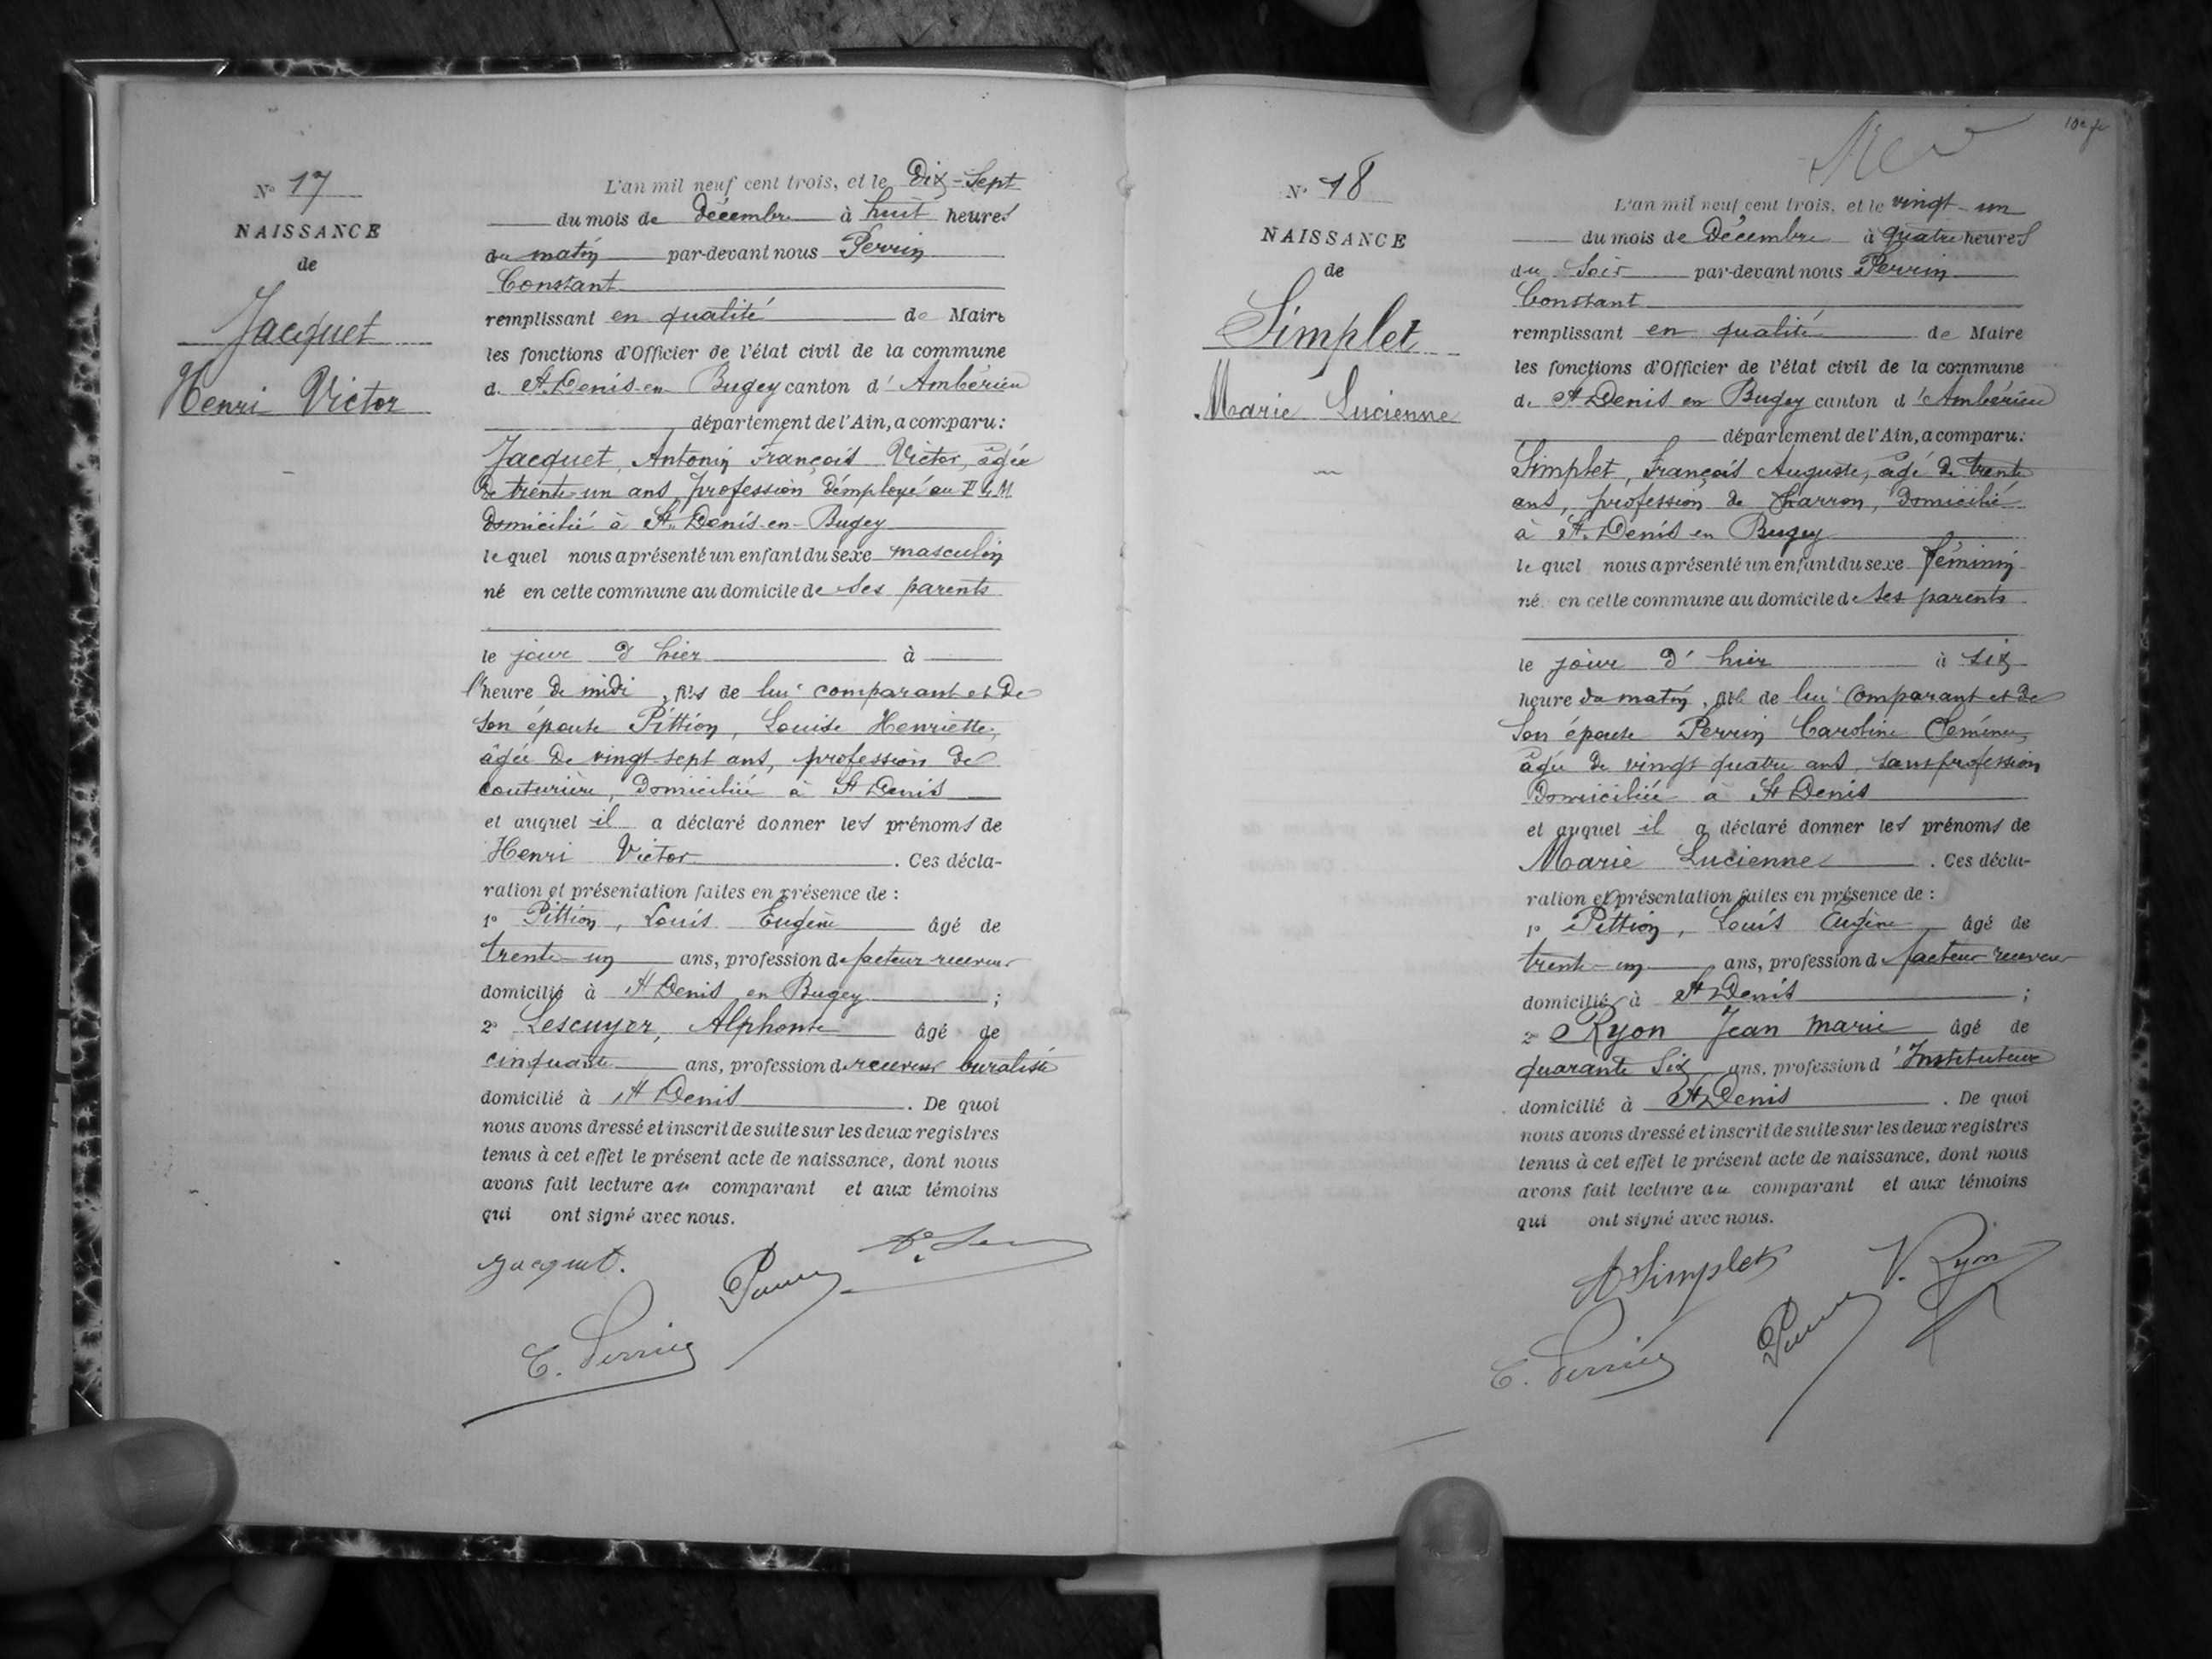 N° 17
NAISSANCE
de
Jacquet
Henri Victor
L'an mil neuf cent trois, et le Dix-Sept
du mois de décembre à huit heures
du matin par-devant nous Perrin
Constant
remplissant en qualité de Maire
les fonctions d'Officier de l'état civil de la commune
de St Denis-en Bugey canton d'Ambérieu
département de l'Ain, a comparu:
Jacquet, Antonin François Victor, âgée
de trente-un ans, profession d'employé au P.L.M.
domicilié à St. Denis-en-Bugey
le quel nous a présenté un enfant du sexe masculin
né en cette commune au domicile de ses parents
le jour d'hier à
l'heure de midi, fils de lui comparant et de
son épouse Pittion, Louise Henriette,
âgée de vingt-sept ans, profession de
couturière, domiciliée à St Denis
et auquel il a déclaré donner les prénoms de
Henri Victor. Ces décla-
ration et présentation faites en présence de :
1° Pittion, Louis Eugène âgé de
trente-un ans, profession de facteur receveur
domicilié à St Denis en Bugey ;
2° Lescuyer, Alphonse âgé de
cinquante ans, profession de receveur buraliste
domicilié à St Denis. De quoi
nous avons dressé et inscrit de suite sur les deux registres
tenus à cet effet le présent acte de naissance, dont nous
avons fait lecture au comparant et aux témoins
qui ont signé avec nous.
Jacquet.
C. Perrin
N° 18
NAISSANCE
de
Simplet
Marie Lucienne
L'an mil neuf cent trois, et le vingt-un
du mois de Décembre à quatre heures
du Soir par-devant nous Perrin
Constant
remplissant en qualité de Maire
les fonctions d'Officier de l'état civil de la commune
de St Denis en Bugey canton d'Ambérieu
département de l'Ain, a comparu:
Simplet, François Auguste, âgé de trente
ans, profession de Charron, domicilié
à St. Denis en Bugey
le quel nous a présenté un enfant du sexe féminin
né en cette commune au domicile de ses parents
le jour d'hier à six
heure du matin, fille de lui comparant et de
son épouse Perrin Caroline
âgée de vingt quatre ans, sans profession
Domiciliée à St Denis
et auquel il a déclaré donner les prénoms de
Marie Lucienne. Ces décla-
ration et présentation faites en présence de :
1° Pittion, Louis Eugène âgé de
trente-un ans, profession de facteur receveur
domicilié à St Denis ;
2° Ryon Jean Marie âgé de
quarante Six ans, profession d'Instituteur
domicilié à St Denis. De quoi
nous avons dressé et inscrit de suite sur les deux registres
tenus à cet effet le présent acte de naissance, dont nous
avons fait lecture au comparant et aux témoins
qui ont signé avec nous.
A Simplet
Ryon
C. Perrin